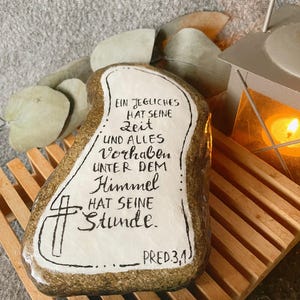 EIN JEGLICHES
HAT SEINE
Zeit
UND ALLES
Vorhaben
UNTER DEM
Himmel
HAT SEINE
Stunde.
PRED.3,1